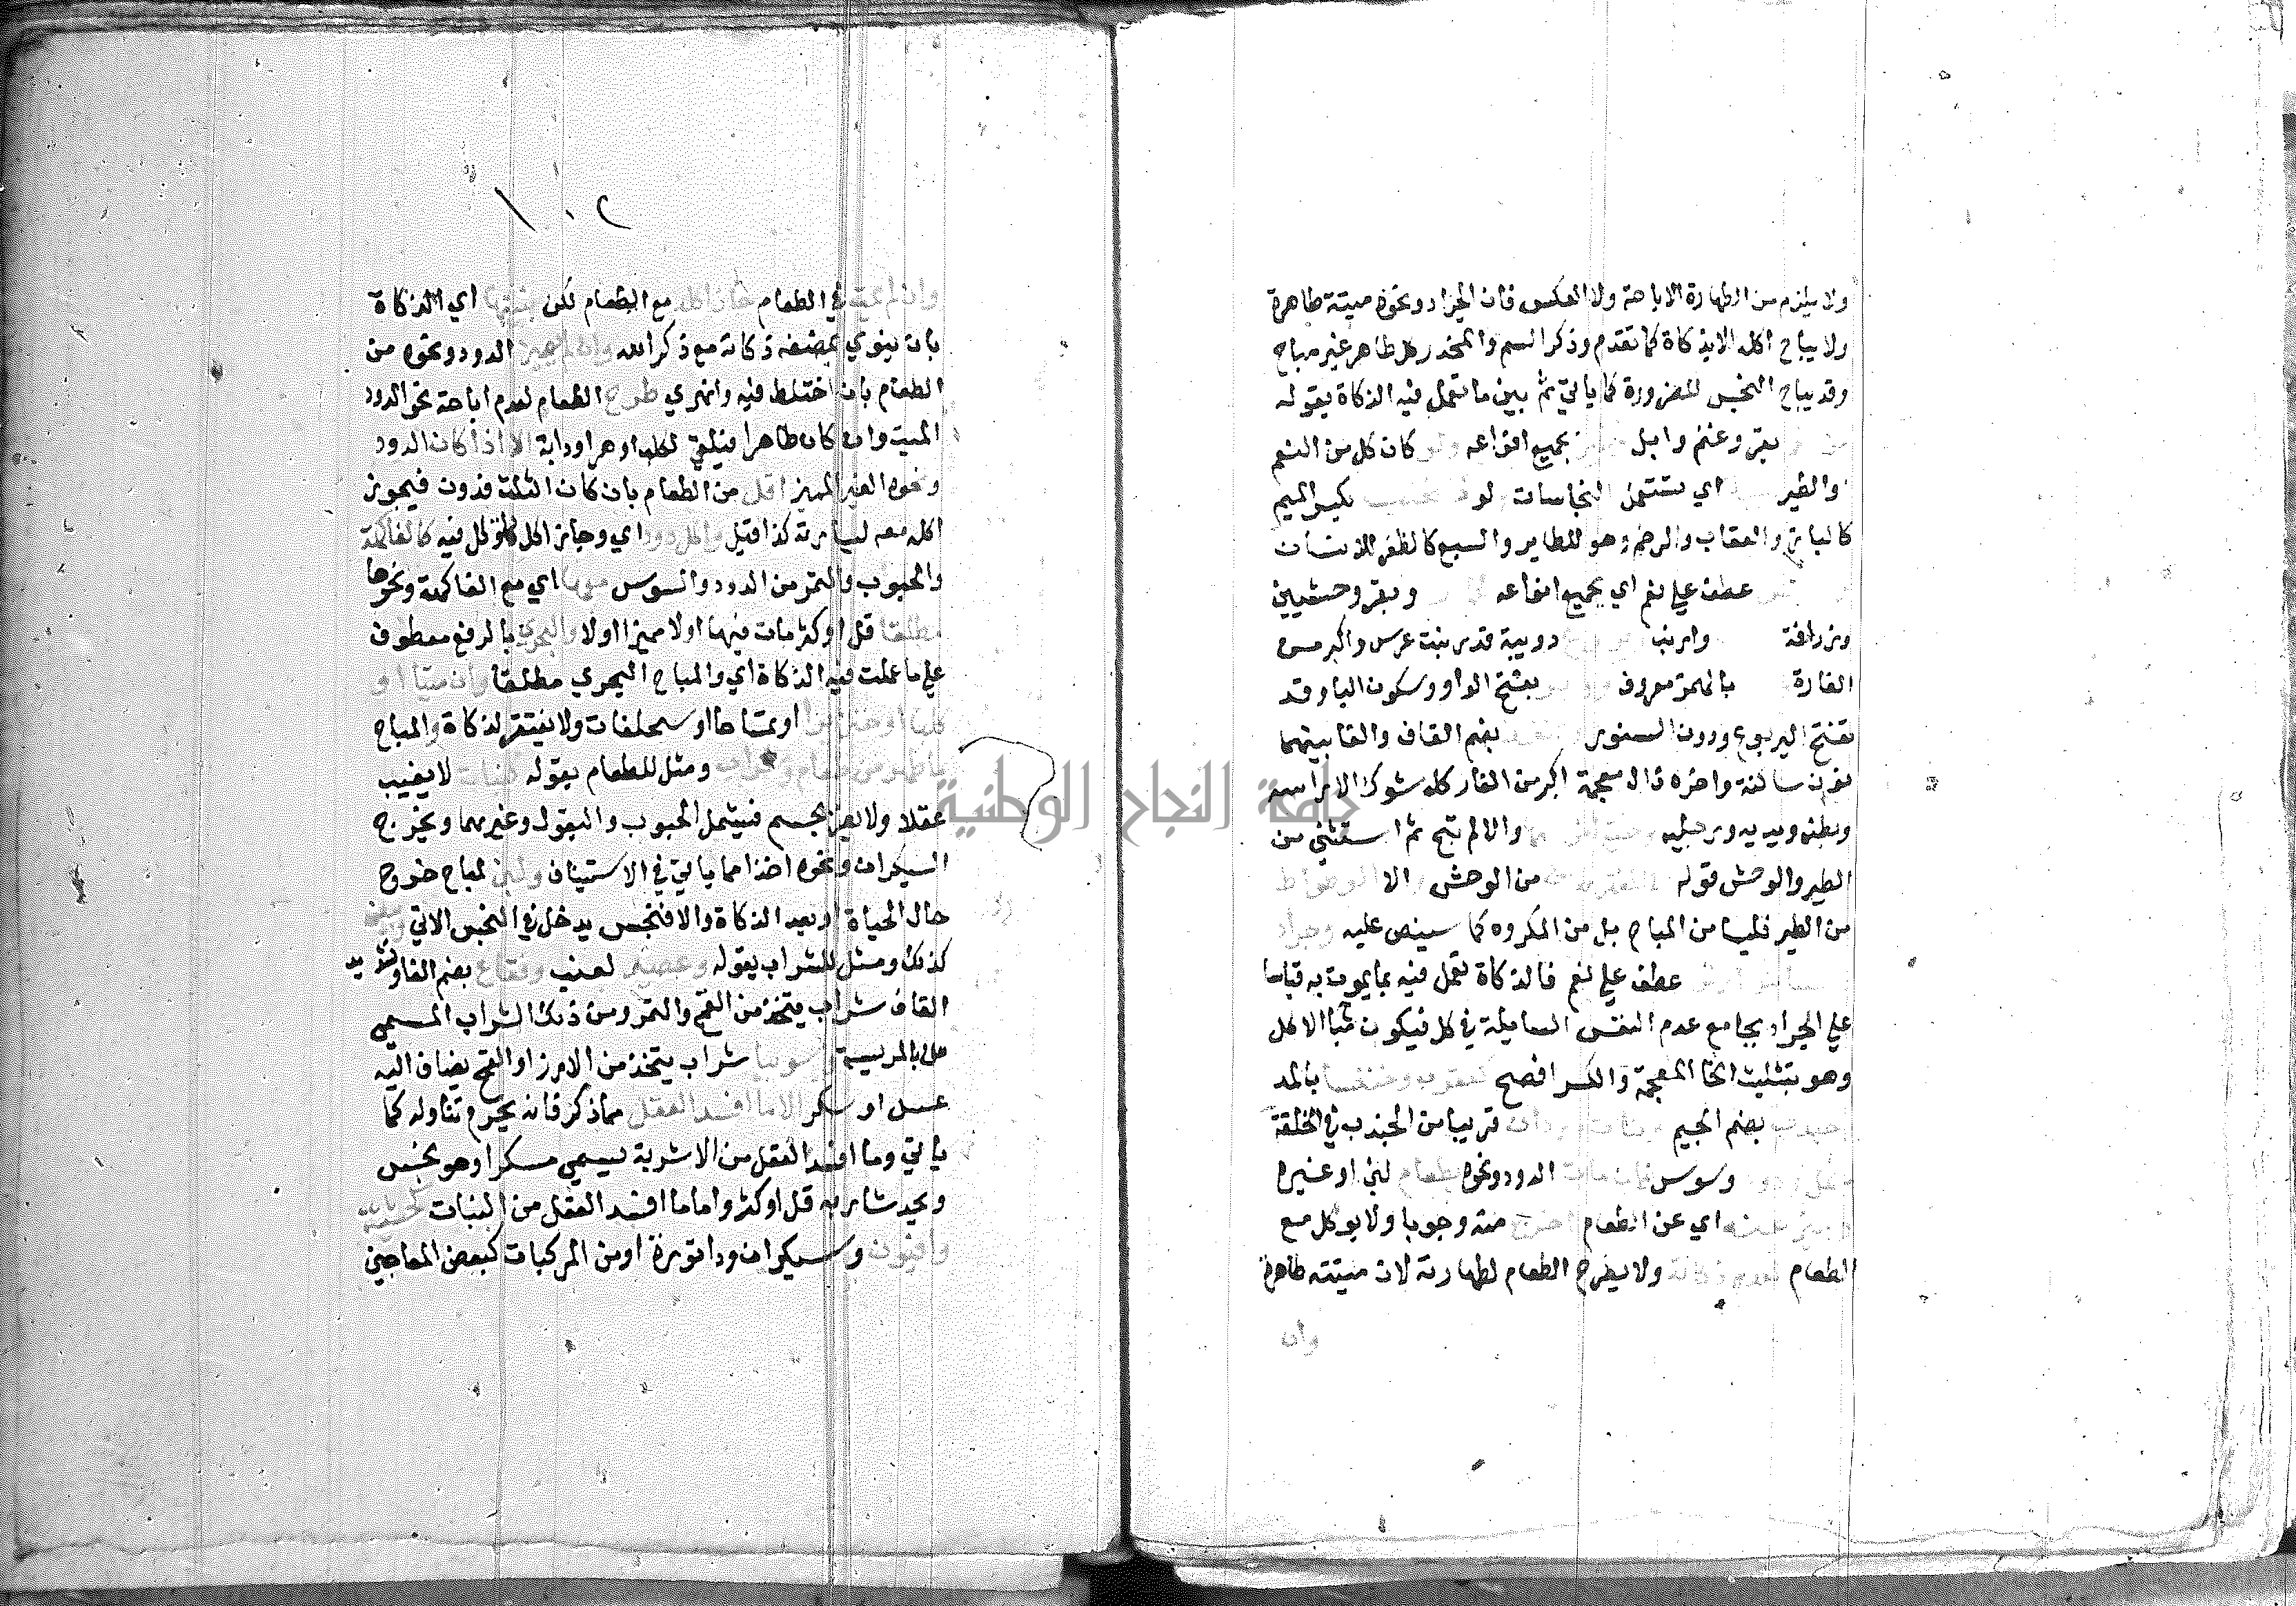 ولا يلزم من الطهارة الاباحة ولا العكس فان الجراد ونحوه ميتة طاهرة
ولا يباح اكله الا بذكاة كما تقدم وذكر السم والمخدر كل طاهر غير مباح
وقد يباح النجس للضرورة كما ياتي ثم بين ما تعمل فيه الذكاة بقوله
بقر وغنم وابل بجميع انواعه كان كل من النعم
والطير اي تستعمل النجاسات لو بكسر الميم
كالباز والعقاب والرخم وهو للطاير والسبع كالظفر للانسان
عطف علي نعم اي بجميع انواعه وبقر وحشيين
وزرافة وارنب دويبة قدر بنت عرس واكبر من
الفارة بالهمز معروف بفتح الواو وسكون البا وقد
تفتح اليربوع ودون السنور بضم القاف والفا بينهما
نون ساكنة واخره ذال معجمة اكبر من الفار كله شوك الا راسه
وبطنه ويديه ورجليه والا لم تبح ثم استثني من
الطير والوحش قوله من الوحش الا الوطواط
من الطير فليسا من المباح بل من المكروه كما سينص عليه وجراد
عطف علي نعم فالذكاة تعمل فيه بما يموت به قياسا
علي الجراد بجامع عدم النفس السايلة في كل فيكون مباح الاكل
وهو بتثليث الخا المعجمة والكسر افصح كعقرب وخنفسا بالمد
بضم الجيم قريبا من الجندب في الخلقة
وسوس فان مات الدود ونحوه بطعام لبن او غيره
اي عن الطعام اخرج منه وجوبا ولا يوكل مع
الطعام لعدم ذكاته ولا يطرح الطعام لطهارته لان ميتته طاهرة
وان
١٠٢
وان لم يمت في الطعام جاز اكله مع الطعام لكن بنيتها اي الذكاة
بان ينوي بمضغه ذكاته مع ذكر الله وان لم يميز الدود ونحوه من
الطعام بان اختلط فيه وانهري طرح الطعام لعدم اباحة نحو الدود
الميت وان كان طاهرا فيلقي لكلب او هر او دابة الا اذا كان الدود
ونحوه الغير المميز اقل من الطعام بان كان الثلث فدون فيجوز
اكله معه لسيارته كذا قيل واكل دود اي وجاز اكل كل فيه كالفاكهة
والحبوب والتمر من الدود والسوس معها اي مع الفاكهة ونحوها
مطلقا قل او كثر مات فيها اولا ميز اولا والبحري بالرفع معطوف
علي ما عملت فيه الذكاة اي والمباح البحري مطلقا وان ميتا او
كلبا او خنزيرا او تمساحا او سلحفات ولا يفتقر لذكاة والمباح
ما طهر من طعام وشراب ومثل للطعام بقوله كنبات لا يغيب
عقلا ولا يضر بجسم فيشمل الحبوب والبقول وغيرهما ويخرج
السيكران ونحوه اخذا مما ياتي في الاستيناف ولبن لمباح خرج
حال الحياة او بعد الذكاة والا فنجس يدخل في النجس الاتي وبيض
كذلك ومثل للشراب بقوله وعصير لعنب وفقاع بضم الفا وتشديد
القاف شراب يتخذ من القمح والتمر ومن ذلك الشراب المسمي
بالمريسة وسوبيا شراب يتخذ من الارز او القمح يضاف اليه
عسل او سكر الا ما افسد العقل مما ذكر فانه يحرم تناوله كما
ياتي وما افسد العقل من الاشربة يسمي مسكرا وهو نجس
ويحد شاربه قل او كثر واما ما افسد العقل من النبات كحشيشة
وافيون وسيكران وداتورة او من المركبات كبعض المعاجين
جامعة النجاح الوطنية